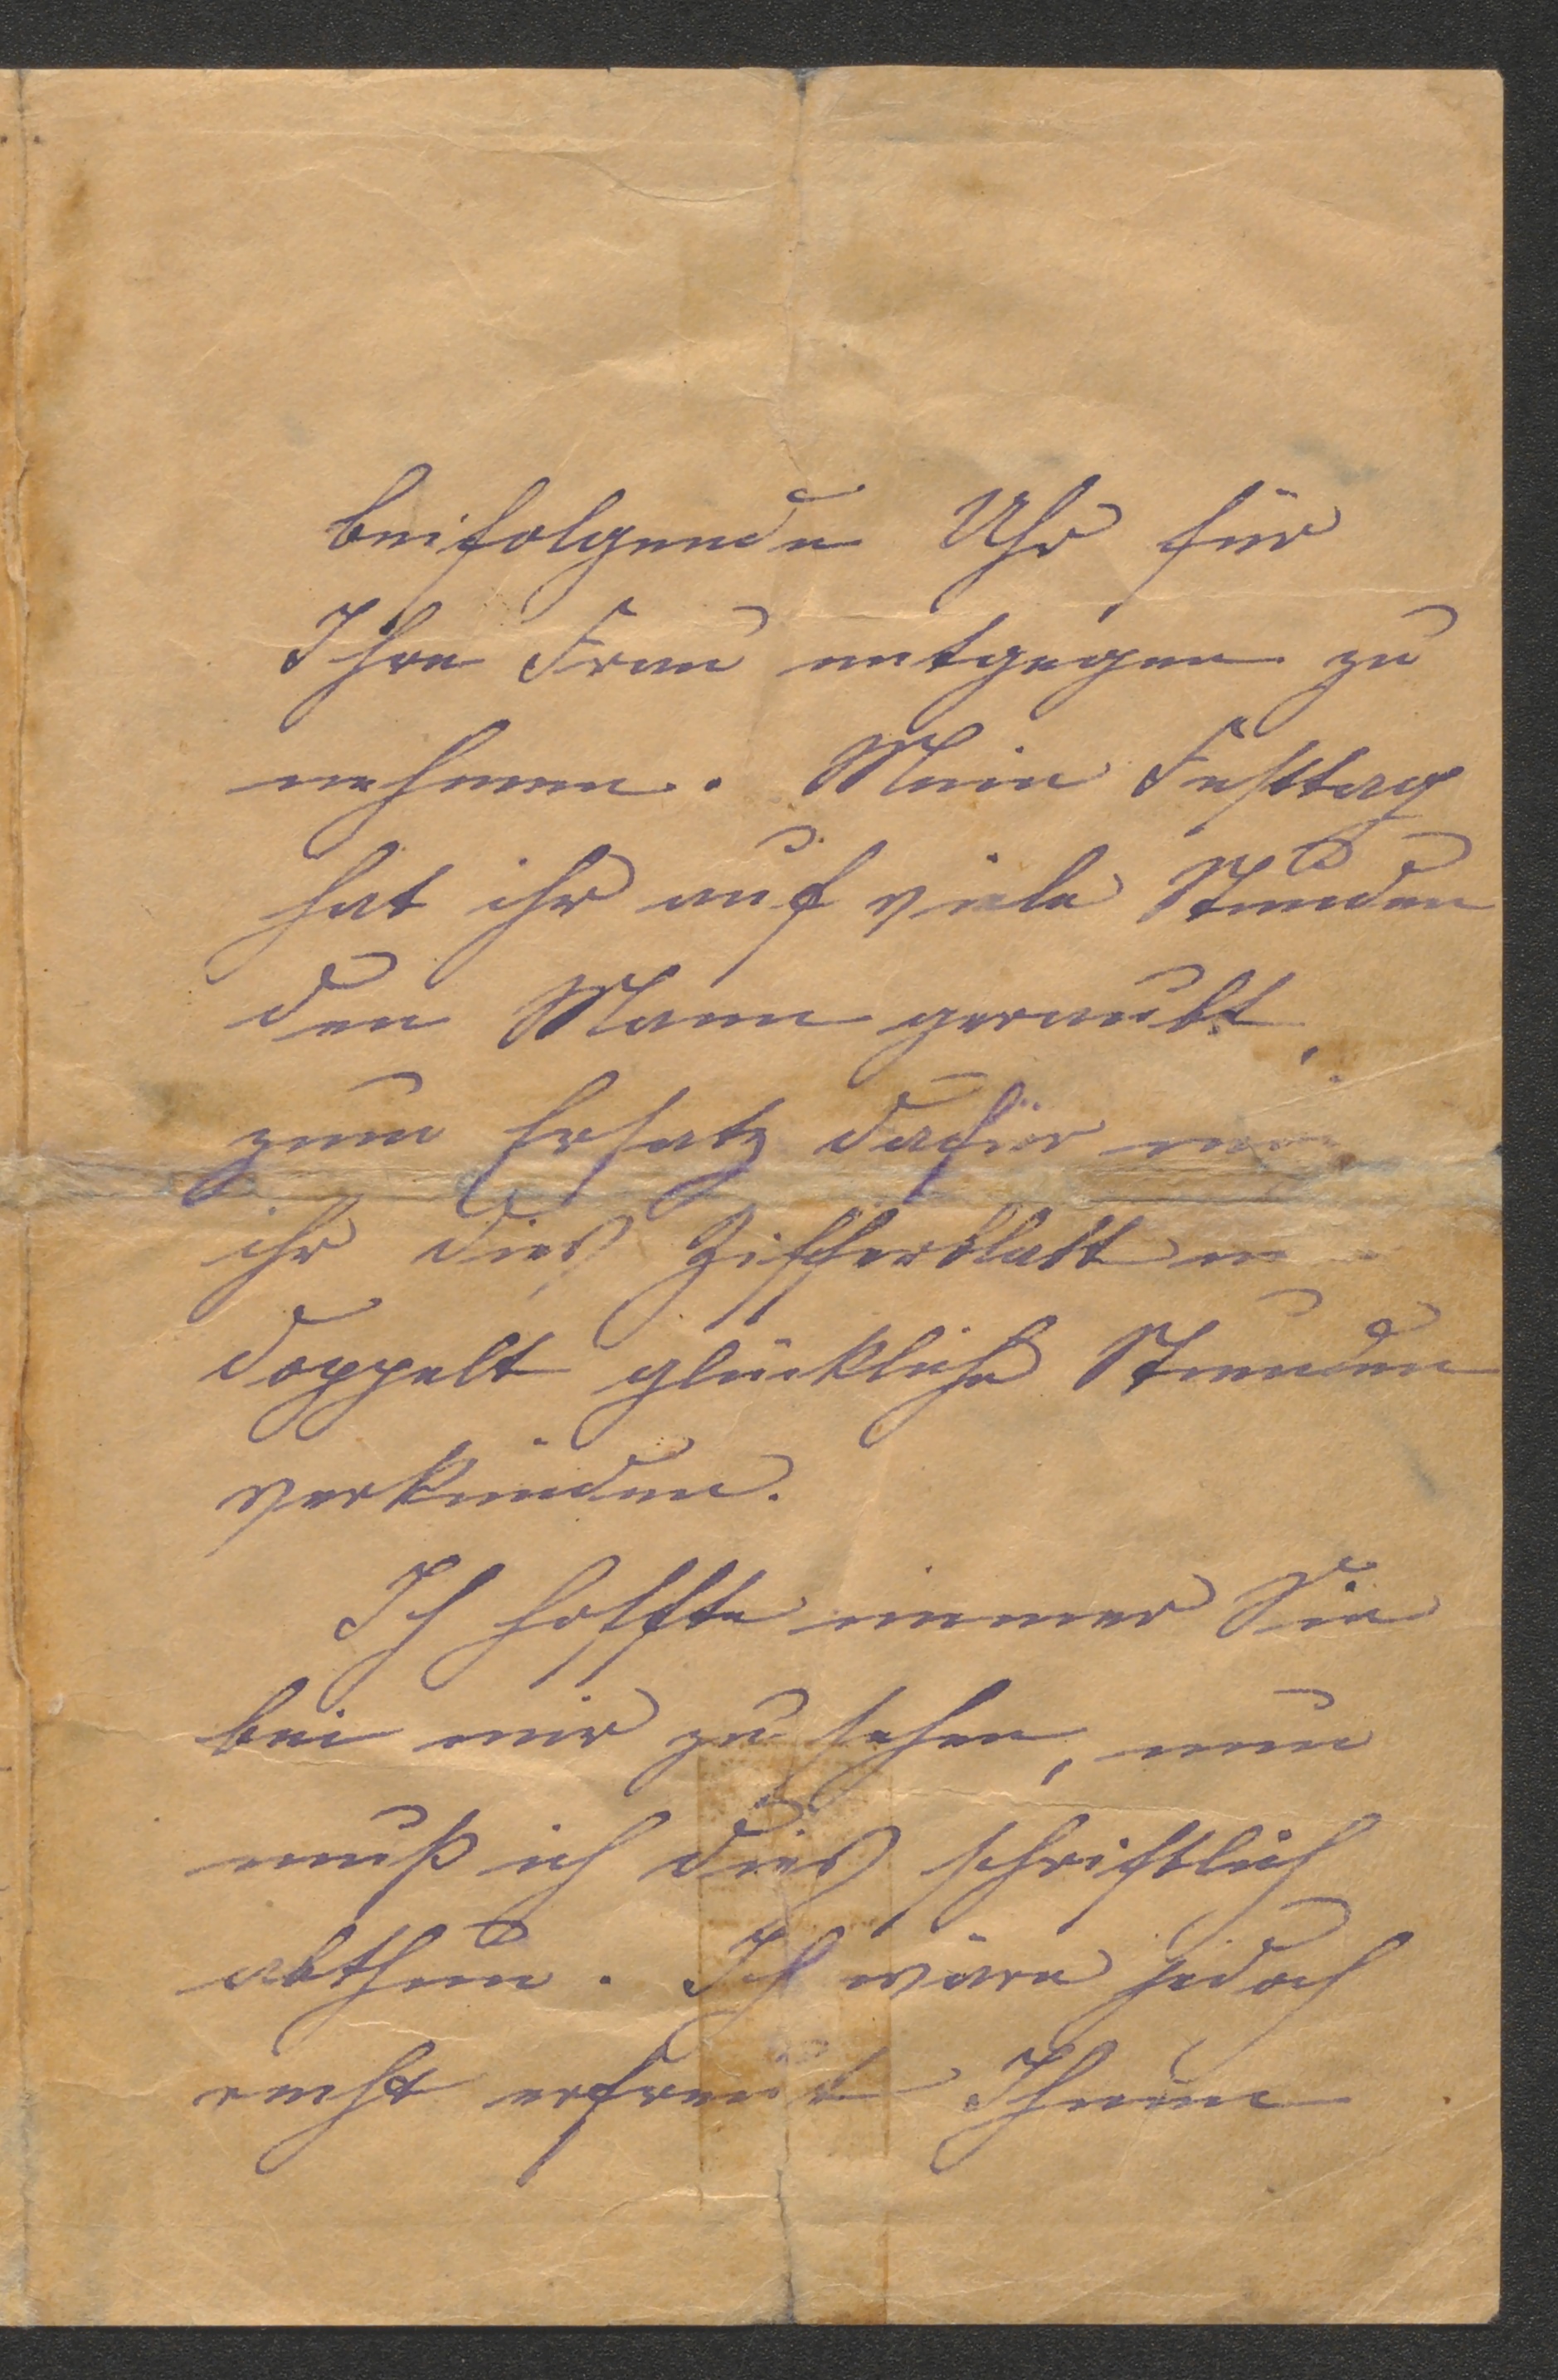 beifolgende Uhr für
Ihre Frau entgegen zu
nehmen. Mein Festtag
hat ihr auf viele Stunden
den Mann geraubt,
zum Ersatz dafür
ihr dies Zifferblatt
doppelt glückliche Stunden
verkünden.
Ich hoffte immer Sie
bei mir zu sehen, nun
muß ich dies schriftlich
abthun. Ich wäre jedoch
recht erfreut Ihnen